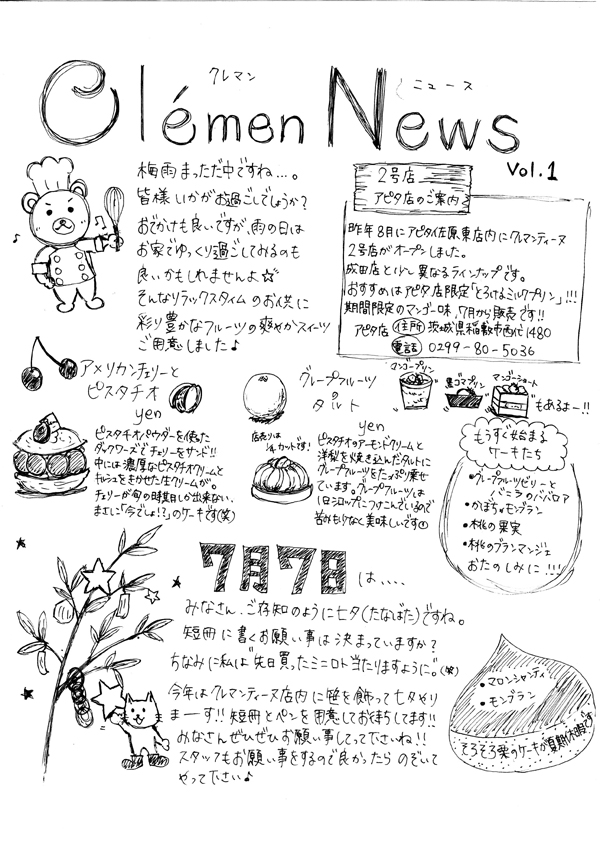 クレマン
ニュース
Clémen News
Vol.1
梅雨まっただ中ですね…。
皆様いかがお過ごしでしょうか?
おでかけも良いですが、雨の日は
お家でゆっくり過ごしてみるのも
良いかもしれませんよ☆
そんなリラックスタイムのお供に
彩り豊かなフルーツの爽やかスイーツ
ご用意しました♪
2号店
アピタ店のご案内
昨年8月にアピタ佐原東店内にクレマンティーヌ
2号店がオープンしました。
成田店と少し異なるラインナップです。
おすすめはアピタ店限定「とろけるミルクプリン」!!!
期間限定のマンゴー味、7月から販売です!!
アピタ店 住所 茨城県稲敷市西代1480
電話 0299-80-5036
アメリカンチェリーと
ピスタチオ
yen
ピスタチオパウダーを使った
ダックワーズでチェリーをサンド!!
中には濃厚なピスタチオクリームと
キルシュをきかせた生クリームが。
チェリーが旬の時期しか出来ない、
まさに「今でしょ!?」のケーキです(笑)
グレープフルーツ
のタルト
yen
店売りは
1/4カットです!
ピスタチオのアーモンドクリームと
洋梨を焼き込んだタルトに
グレープフルーツをたっぷり乗せ
ています。グレープフルーツは
1日シロップにつけこんでいるので
苦みもけなく美味しいです
マンゴープリン
黒ゴマプリン
マンゴーショート
もあるよー!!
もうすぐ始まる
ケーキたち
・グレープフルーツゼリーと
バニラのババロア
・かぼちゃモンブラン
・桃の果実
・桃のブランマンジェ
おたのしみに!!!
7月7日は、…
みなさん、ご存知のように七夕(たなばた)ですね。
短冊に書くお願い事は決まっていますか?
ちなみに私は“先日買ったミニロト当たりますように”。(笑)
今年はクレマンティーヌ店内に笹を飾って七夕やり
まーす!!短冊とペンを用意してお待ちしてます!!
みなさんぜひぜひお願い事してって下さいね!!
スタッフもお願い事をするので良かったらのぞいて
やって下さい♪
・マロンシャンティ
・モンブラン
そろそろ栗のケーキが夏期休暇です